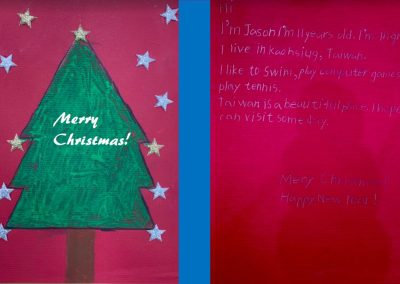 Merry
Christmas!
Hi!
I'm Jason I'm 11 years old. I'm
I live in kaohsiug, Taiwan.
I like to swim, play computer games
play tennis.
Taiwan is a beautiful place. I hope
can visit some day.
Mery
Happy New Year!